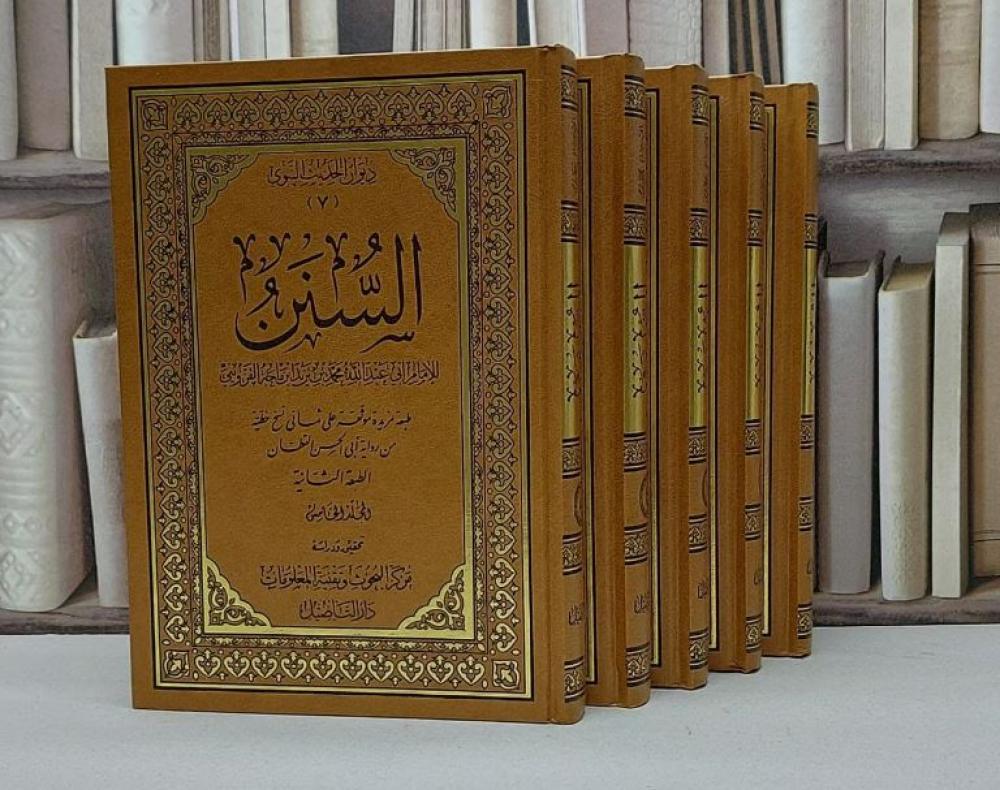 ديوان الحديث النبوي
(٧)
السُّنَنُ
للإمام أبي عبد الله محمد بن يزيد ابن ماجه القزويني
طبعة مزيدة موثقة على ثماني نسخ خطية
من رواية أبي الحسن القطان
الطبعة الثانية
المجلد الخامس
تحقيق ودراسة
مركز البحوث وتقنية المعلومات
دار التأصيل